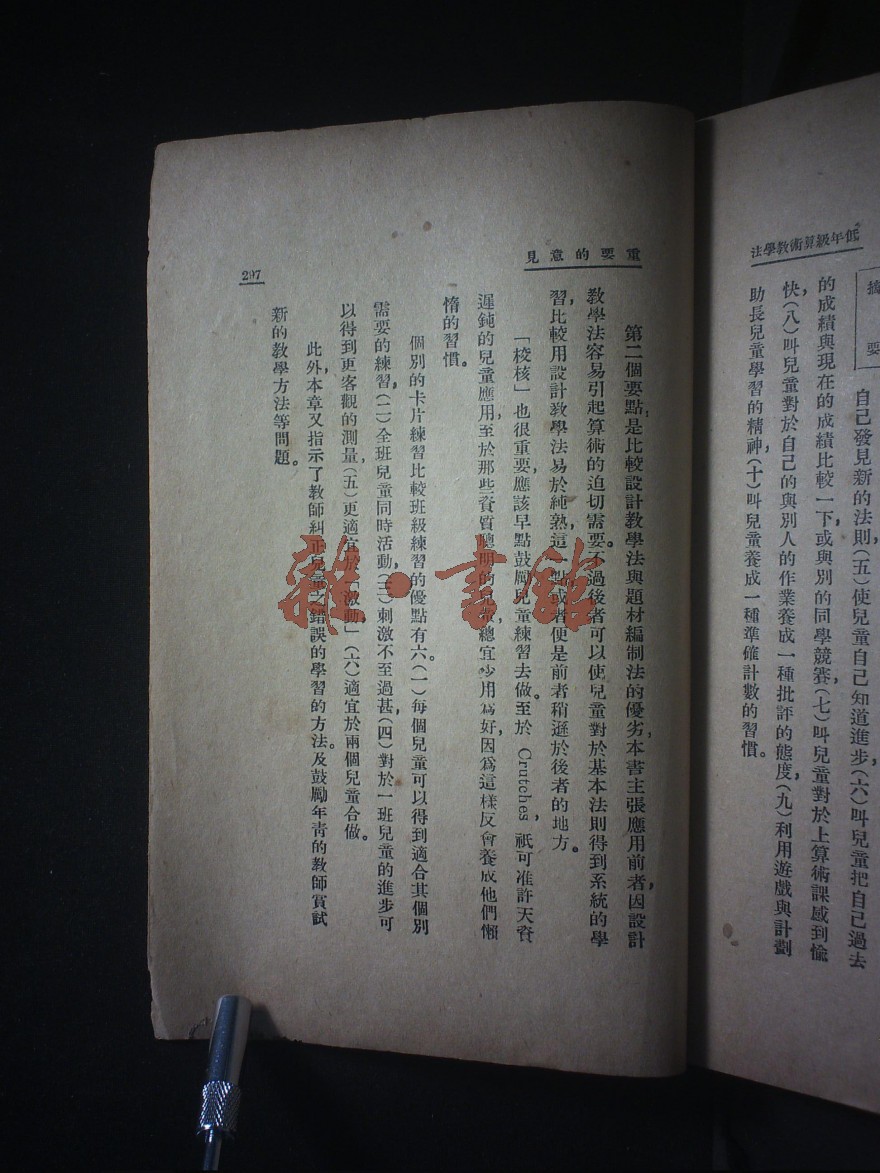 低年級算術教學法
摘要
自己發見新的法則，（五）使兒童自己知道進步，（六）叫兒童把自己過去
的成績與現在的成績比較一下，或與別的同學競賽，（七）叫兒童對於上算術課感到愉
快，（八）叫兒童對於自己的與別人的作業養成一種批評的態度，（九）利用遊戲與計劃
助長兒童學習的精神，（十）叫兒童養成一種準確計數的習慣。
重要的意見
第二個要點，是比較設計教學法與題材編制法的優劣，本書主張應用前者，因設計
教學法容易引起算術的迫切需要。不過後者可以使兒童對於基本法則得到系統的學
習，比較用設計教學法易於純熟，這一點或者便是前者稍遜於後者的地方。
「校核」也很重要，應該早點鼓勵兒童練習去做。至於 Crutches，祇可准許天資
遲鈍的兒童應用，至於那些資質聰明的兒童，總宜少用爲好，因爲這樣反會養成他們懶
惰的習慣。
個別的卡片練習比較班級練習的優點有六。（一）每個兒童可以得到適合其個別
需要的練習，（二）全班兒童同時活動，（三）刺激不至過甚，（四）對於一班兒童的進步可
以得到更客觀的測量，（五）更適宜於「激動」，（六）適宜於兩個兒童合做。
此外，本章又指示了教師糾正兒童之錯誤的學習的方法。及鼓勵年青的教師嘗試
新的教學方法等問題。
297
雜·書館